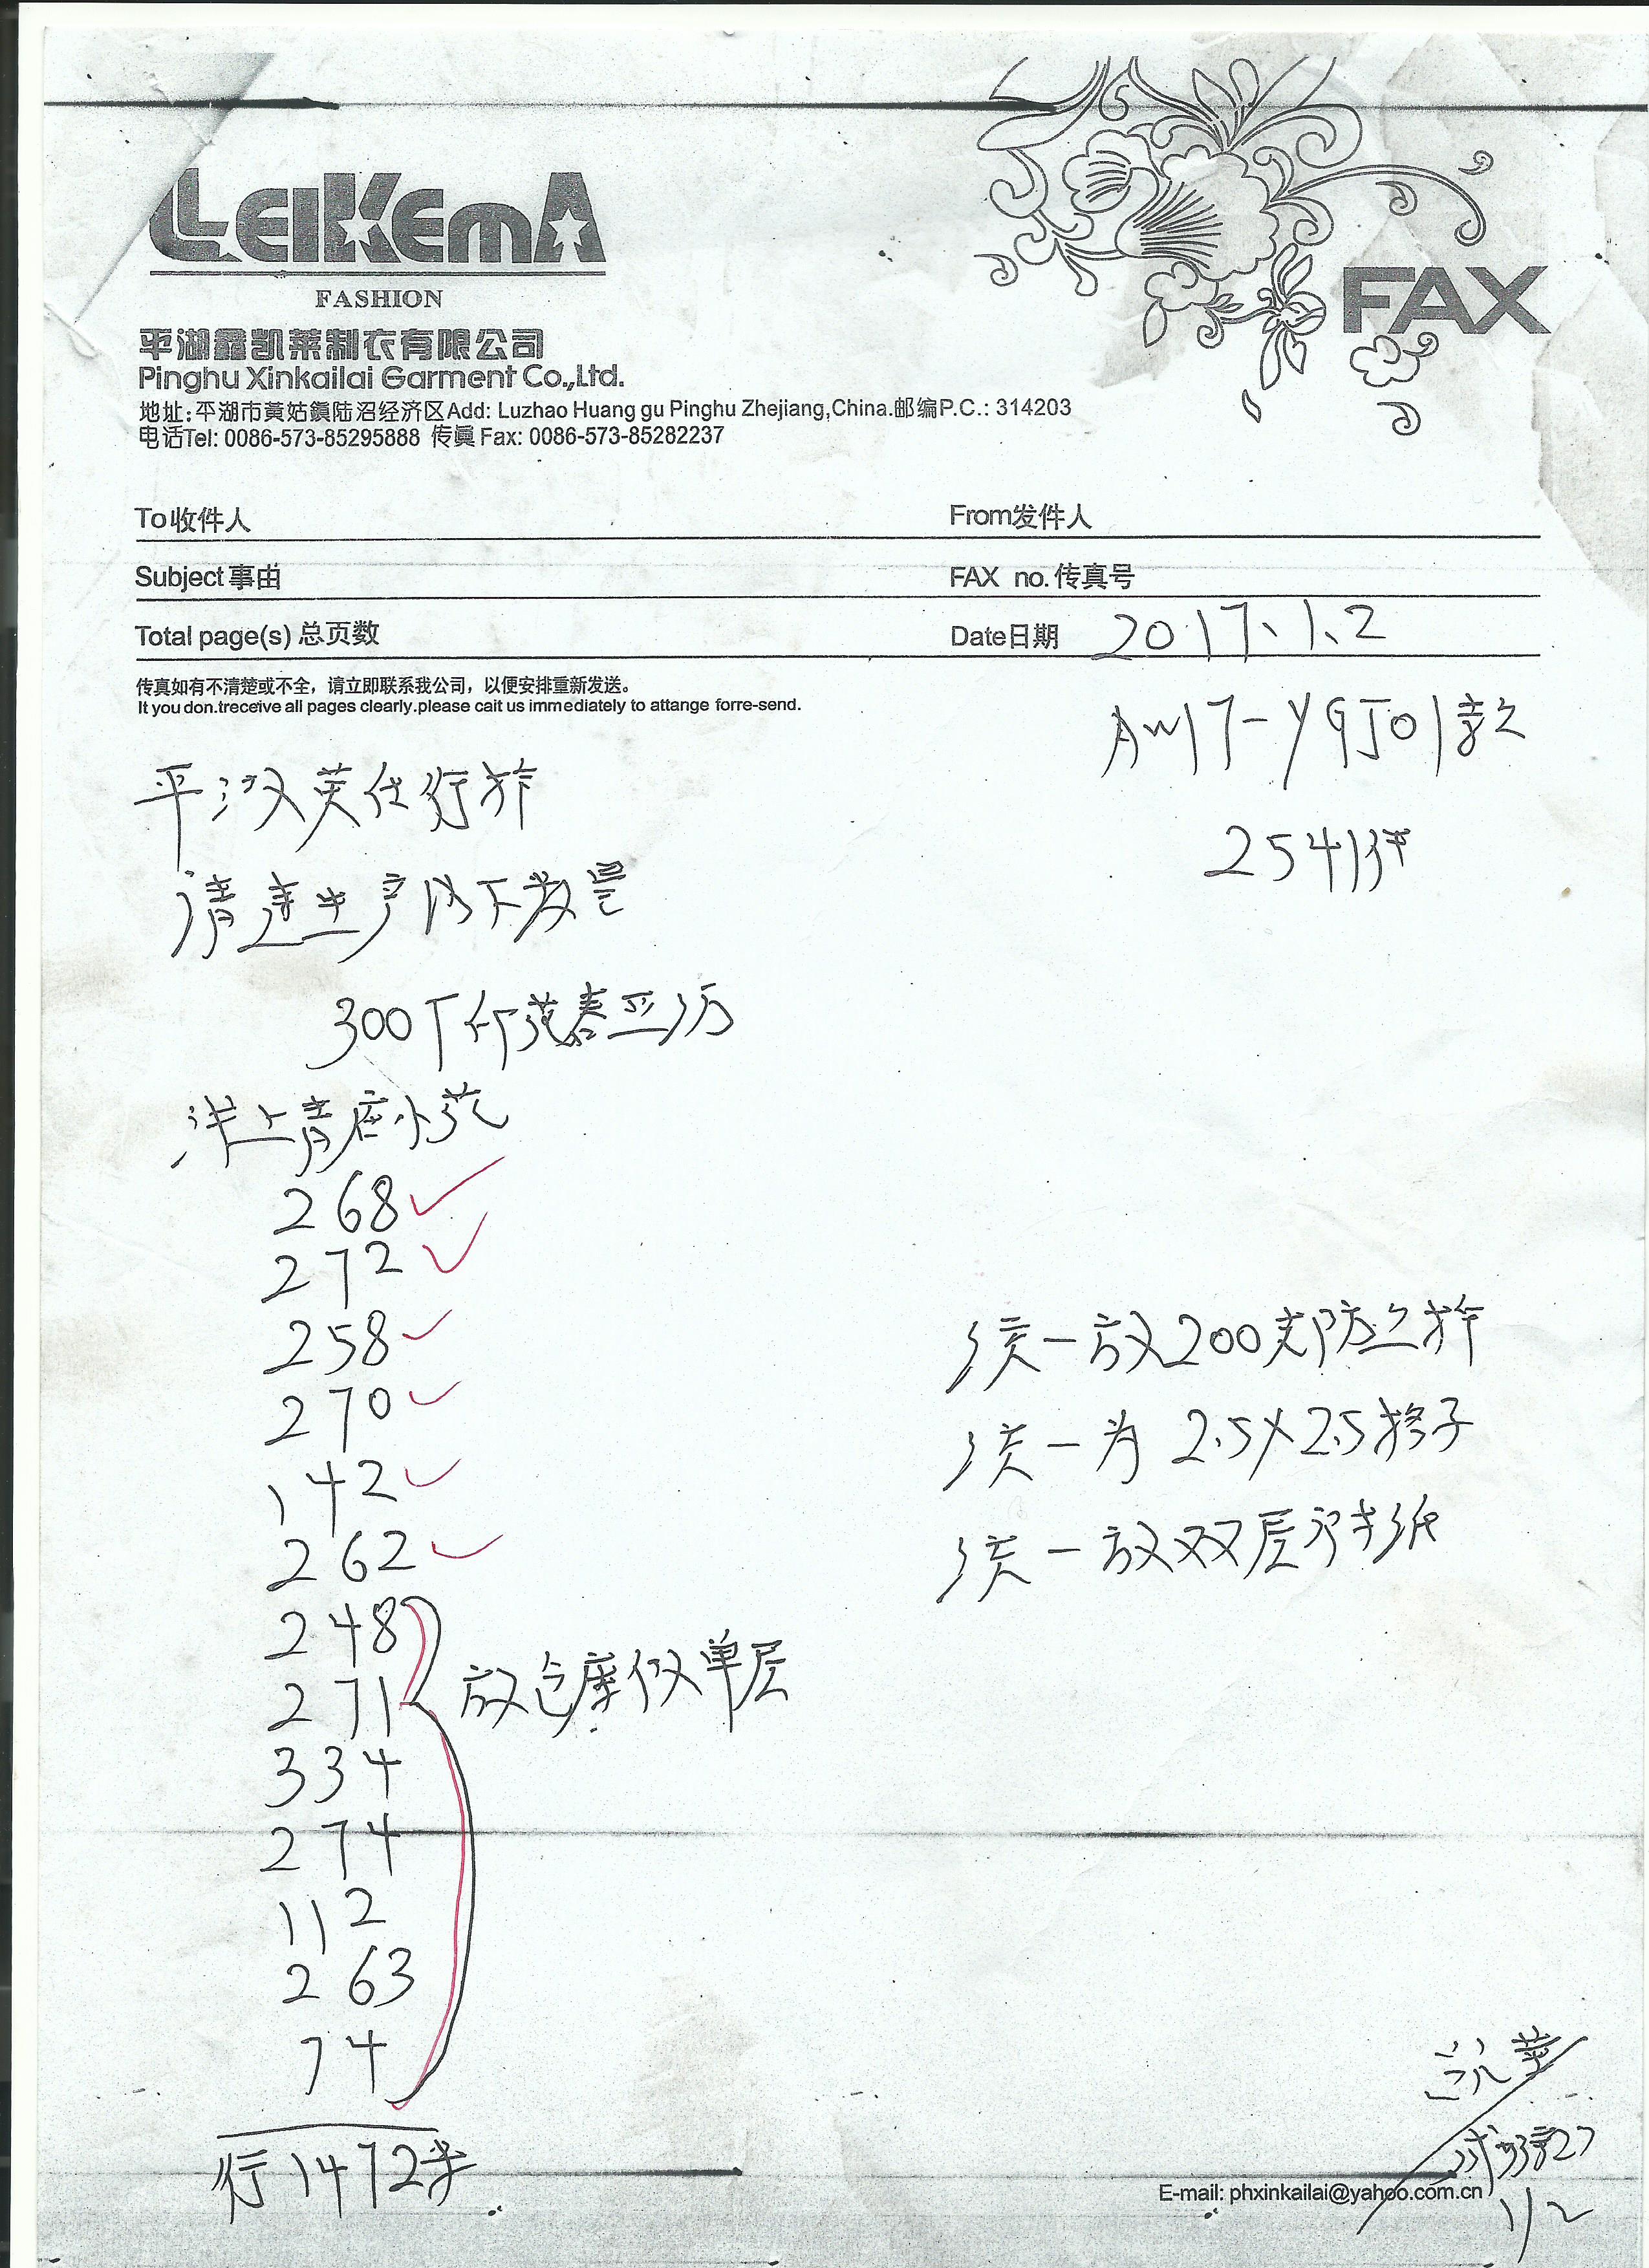 LEIKEMA
FASHION
FAX
平湖鑫凯莱制衣有限公司
Pinghu Xinkailai Garment Co.,Ltd.
地址:平湖市黄姑鎭陆沼经济区Add: Luzhao Huang gu Pinghu Zhejiang,China.邮编P.C.: 314203
电话Tel: 0086-573-85295888 传真Fax: 0086-573-85282237
To收件人
From发件人
Subject事由
FAX no.传真号
Total page(s)总页数
Date日期 2017、1、2
传真如有不清楚或不全，请立即联系我公司，以便安排重新发送。
It you don.treceive all pages clearly.please cait us immediately to attange forre-send.
AW17-YGJ01款
2541件
平汉英代行棉
请速生产以下数量
300T印花春亚纺
洋上青底小花
268
272
258
270
142
262
248
271
334
274
112
263
74
放仓库仅单层
行1472米
须一放200克防立棉
须一为 2.5X2.5格子
须一放双层衬纸
凯莱
1/2
E-mail: phxinkailai@yahoo.com.cn